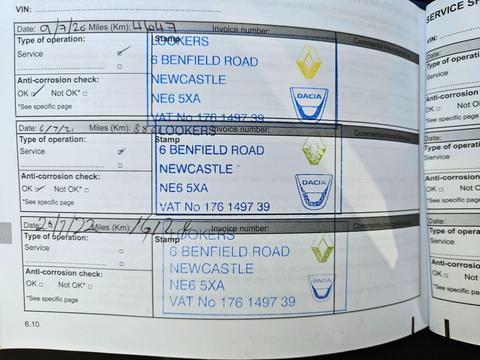 VIN:
SERVICE
Date: 9/7/20 Miles (Km): 4647 Invoice number:
Type of operation:
Service
Anti-corrosion check:
OK Not OK*
*See specific page
Stamp
LOOKERS
6 BENFIELD ROAD
NEWCASTLE
NE6 5XA
VAT No 176 1497 39
DACIA
Date: 6/7/21 Miles (Km): Invoice number:
Type of operation:
Service
Anti-corrosion check:
OK Not OK*
*See specific page
Stamp
LOOKERS
6 BENFIELD ROAD
NEWCASTLE
NE6 5XA
VAT No 176 1497 39
DACIA
Date: Miles (Km): Invoice number:
Type of operation:
Service
Anti-corrosion check:
OK Not OK*
*See specific page
Stamp
LOOKERS
6 BENFIELD ROAD
NEWCASTLE
NE6 5XA
VAT No 176 1497 39
DACIA
6.10
VIN:
Date:
Type of operation:
Service
Anti-corrosion
OK Not
*See specific page
Date:
Type of operation:
Service
Anti-corrosion
OK Not OK
*See specific page
Date:
Type of operation:
Service
Anti-corrosion
OK Not O
*See specific page